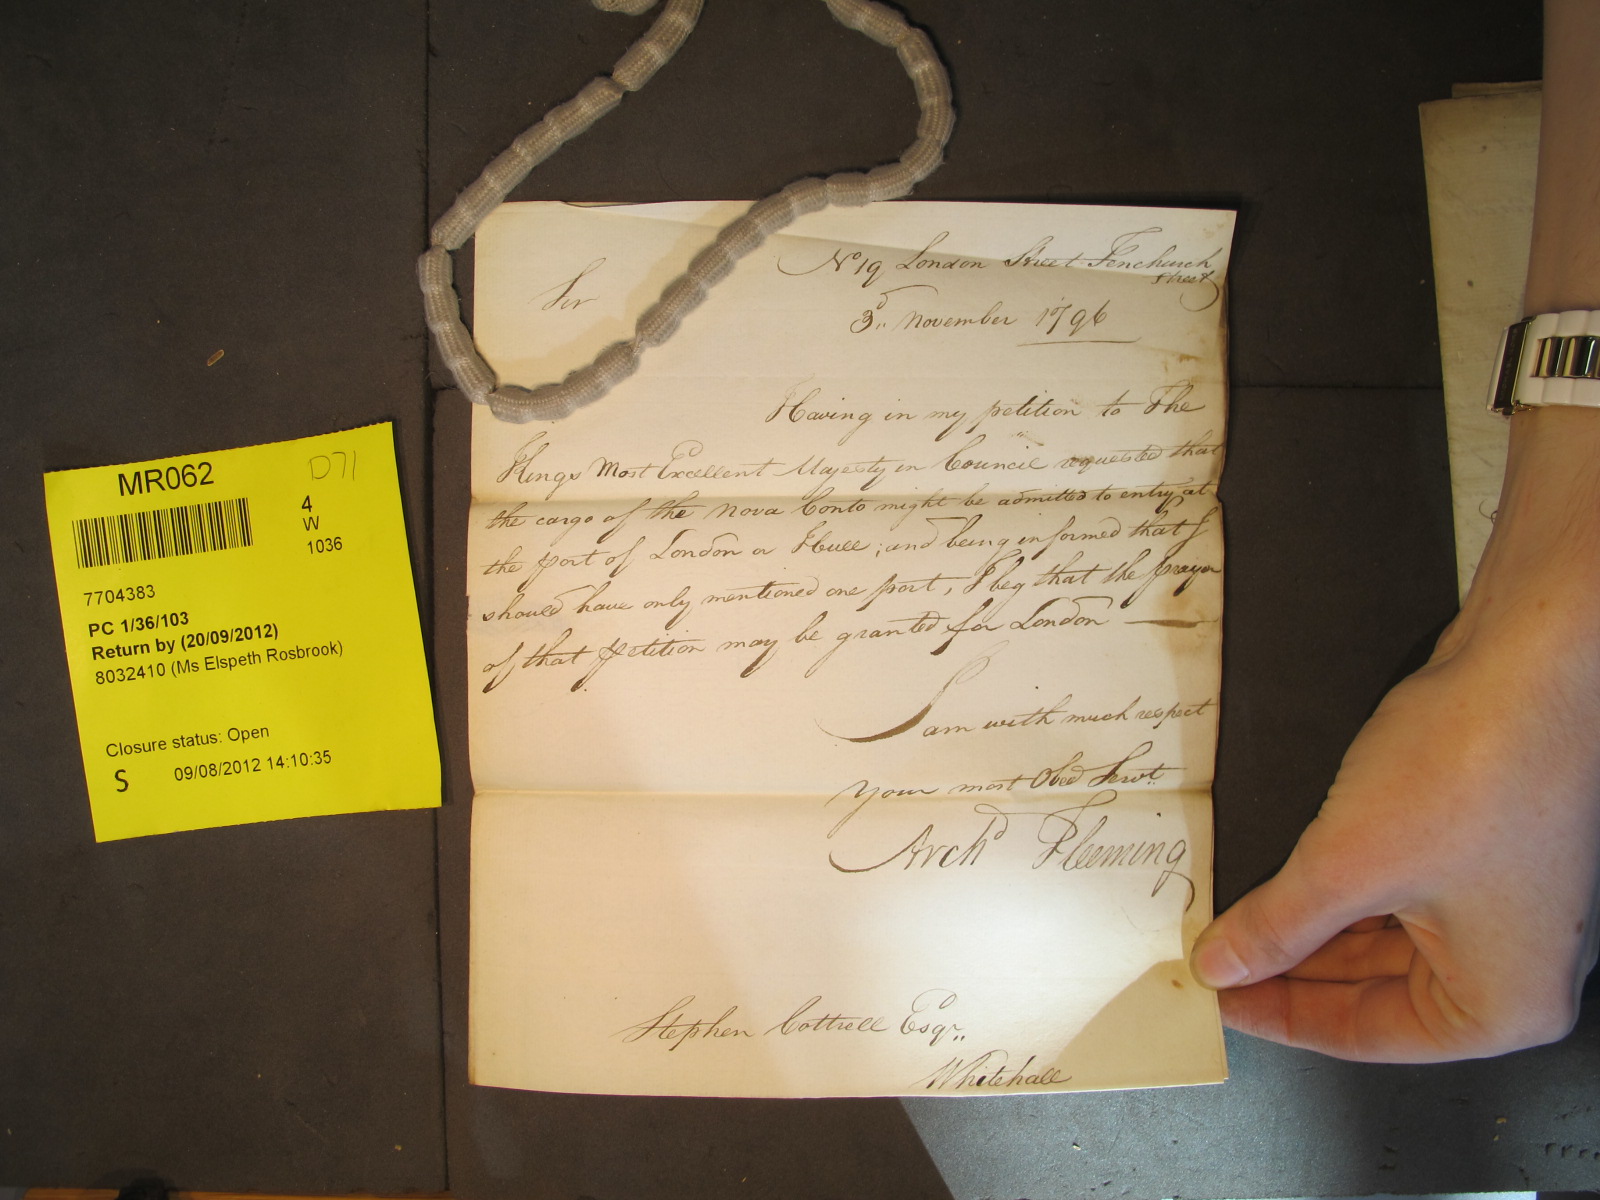 No 19 London Street Fenchurch
Street
Sir
3d November 1796
Having in my petition to The
Kings Most Excellent Majesty in Council requested that
the cargo of the Nova Conto might be admitted to entry at
the port of London or Hull; and being informed that I
should have only mentioned one port, I beg that the prayer
of that petition may be granted for London
I am with much respect
Your most Obed Servt
Archd Fleming
Stephen Cottrell Esqr
Whitehall
MR062
D71
4
W
1036
7704383
PC 1/36/103
Return by (20/09/2012)
8032410 (Ms Elspeth Rosbrook)
Closure status: Open
S 09/08/2012 14:10:35